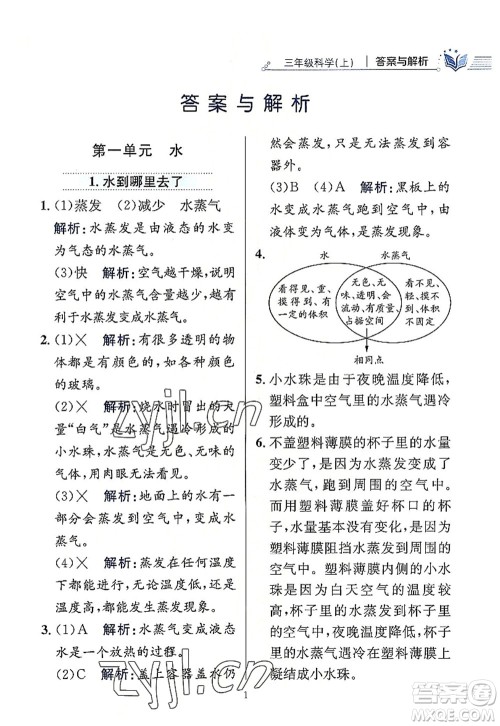 三年级科学(上) 答案与解析
答案与解析
第一单元 水
1.水到哪里去了
1. (1)蒸发 (2)减少 水蒸气
解析:水蒸发是由液态的水变
为气态的水蒸气。
(3)快 解析:空气越干燥,说明
空气中的水蒸气含量越少,水
越容易蒸发。
2. (1)× 解析:有很多透明的物
体都是有颜色的,如有颜色的
的玻璃。
(2)× 解析:烧水时冒出的大
量“白气”是水蒸气遇冷形成的
小水珠,空气中的水蒸气透明,
用肉眼无法看见。
(3)× 解析:地面上的水有一
部分会蒸发到空气中,变成水
蒸气。
(4)× 解析:蒸发在任何温度
下都能发生,有的液体在低温
下也能发生蒸发现象。
3. (1)A 解析:水蒸气变成液态
水是一个放热的过程。
(2)C 解析:盖上容器盖水仍
然会蒸发,只是无法蒸发到
容器外。
(3)B (4)A 解析:黑板上的
水变成水蒸气跑到空气中,由
液体变为气体,发生了蒸发
现象。
4.
水 水蒸气
看得见、重、
摸得到、有
一定的体积
无色、无
味、透明、会
流动、有质量、
占据空间
看不见、
轻、摸不
到、体积
不固定
相同点
5. 小水珠是由于夜晚温度降低,
塑料盒中空气里的水蒸气遇冷
形成的。
6. 不盖塑料薄膜的杯子里的水量
变少了,是因为水蒸发变成了
水蒸气,跑到周围的空气中。
而用塑料薄膜盖好杯口的杯
子,水量基本没有变化,是因为
塑料薄膜阻挡水蒸发到周围的
空气中。塑料薄膜内壁的小水
珠是因为白天空气中的水蒸气
由于夜晚温度降低,在薄膜上
凝结成小水珠。
1
zyjl.cn